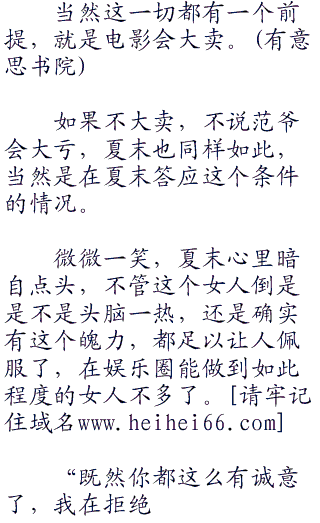 当然这一切都有一个前
提，就是电影会大卖。(有意
思书院)
如果不大卖，不说范爷
会大亏，夏末也同样如此，
当然是在夏末答应这个条件
的情况。
微微一笑，夏末心里暗
自点头，不管这个女人倒是
是不是头脑一热，还是确实
有这个魄力，都足以让人佩
服了，在娱乐圈能做到如此
程度的女人不多了。[请牢记
住域名www.heihei66.com]
“既然你都这么有诚意
了，我在拒绝